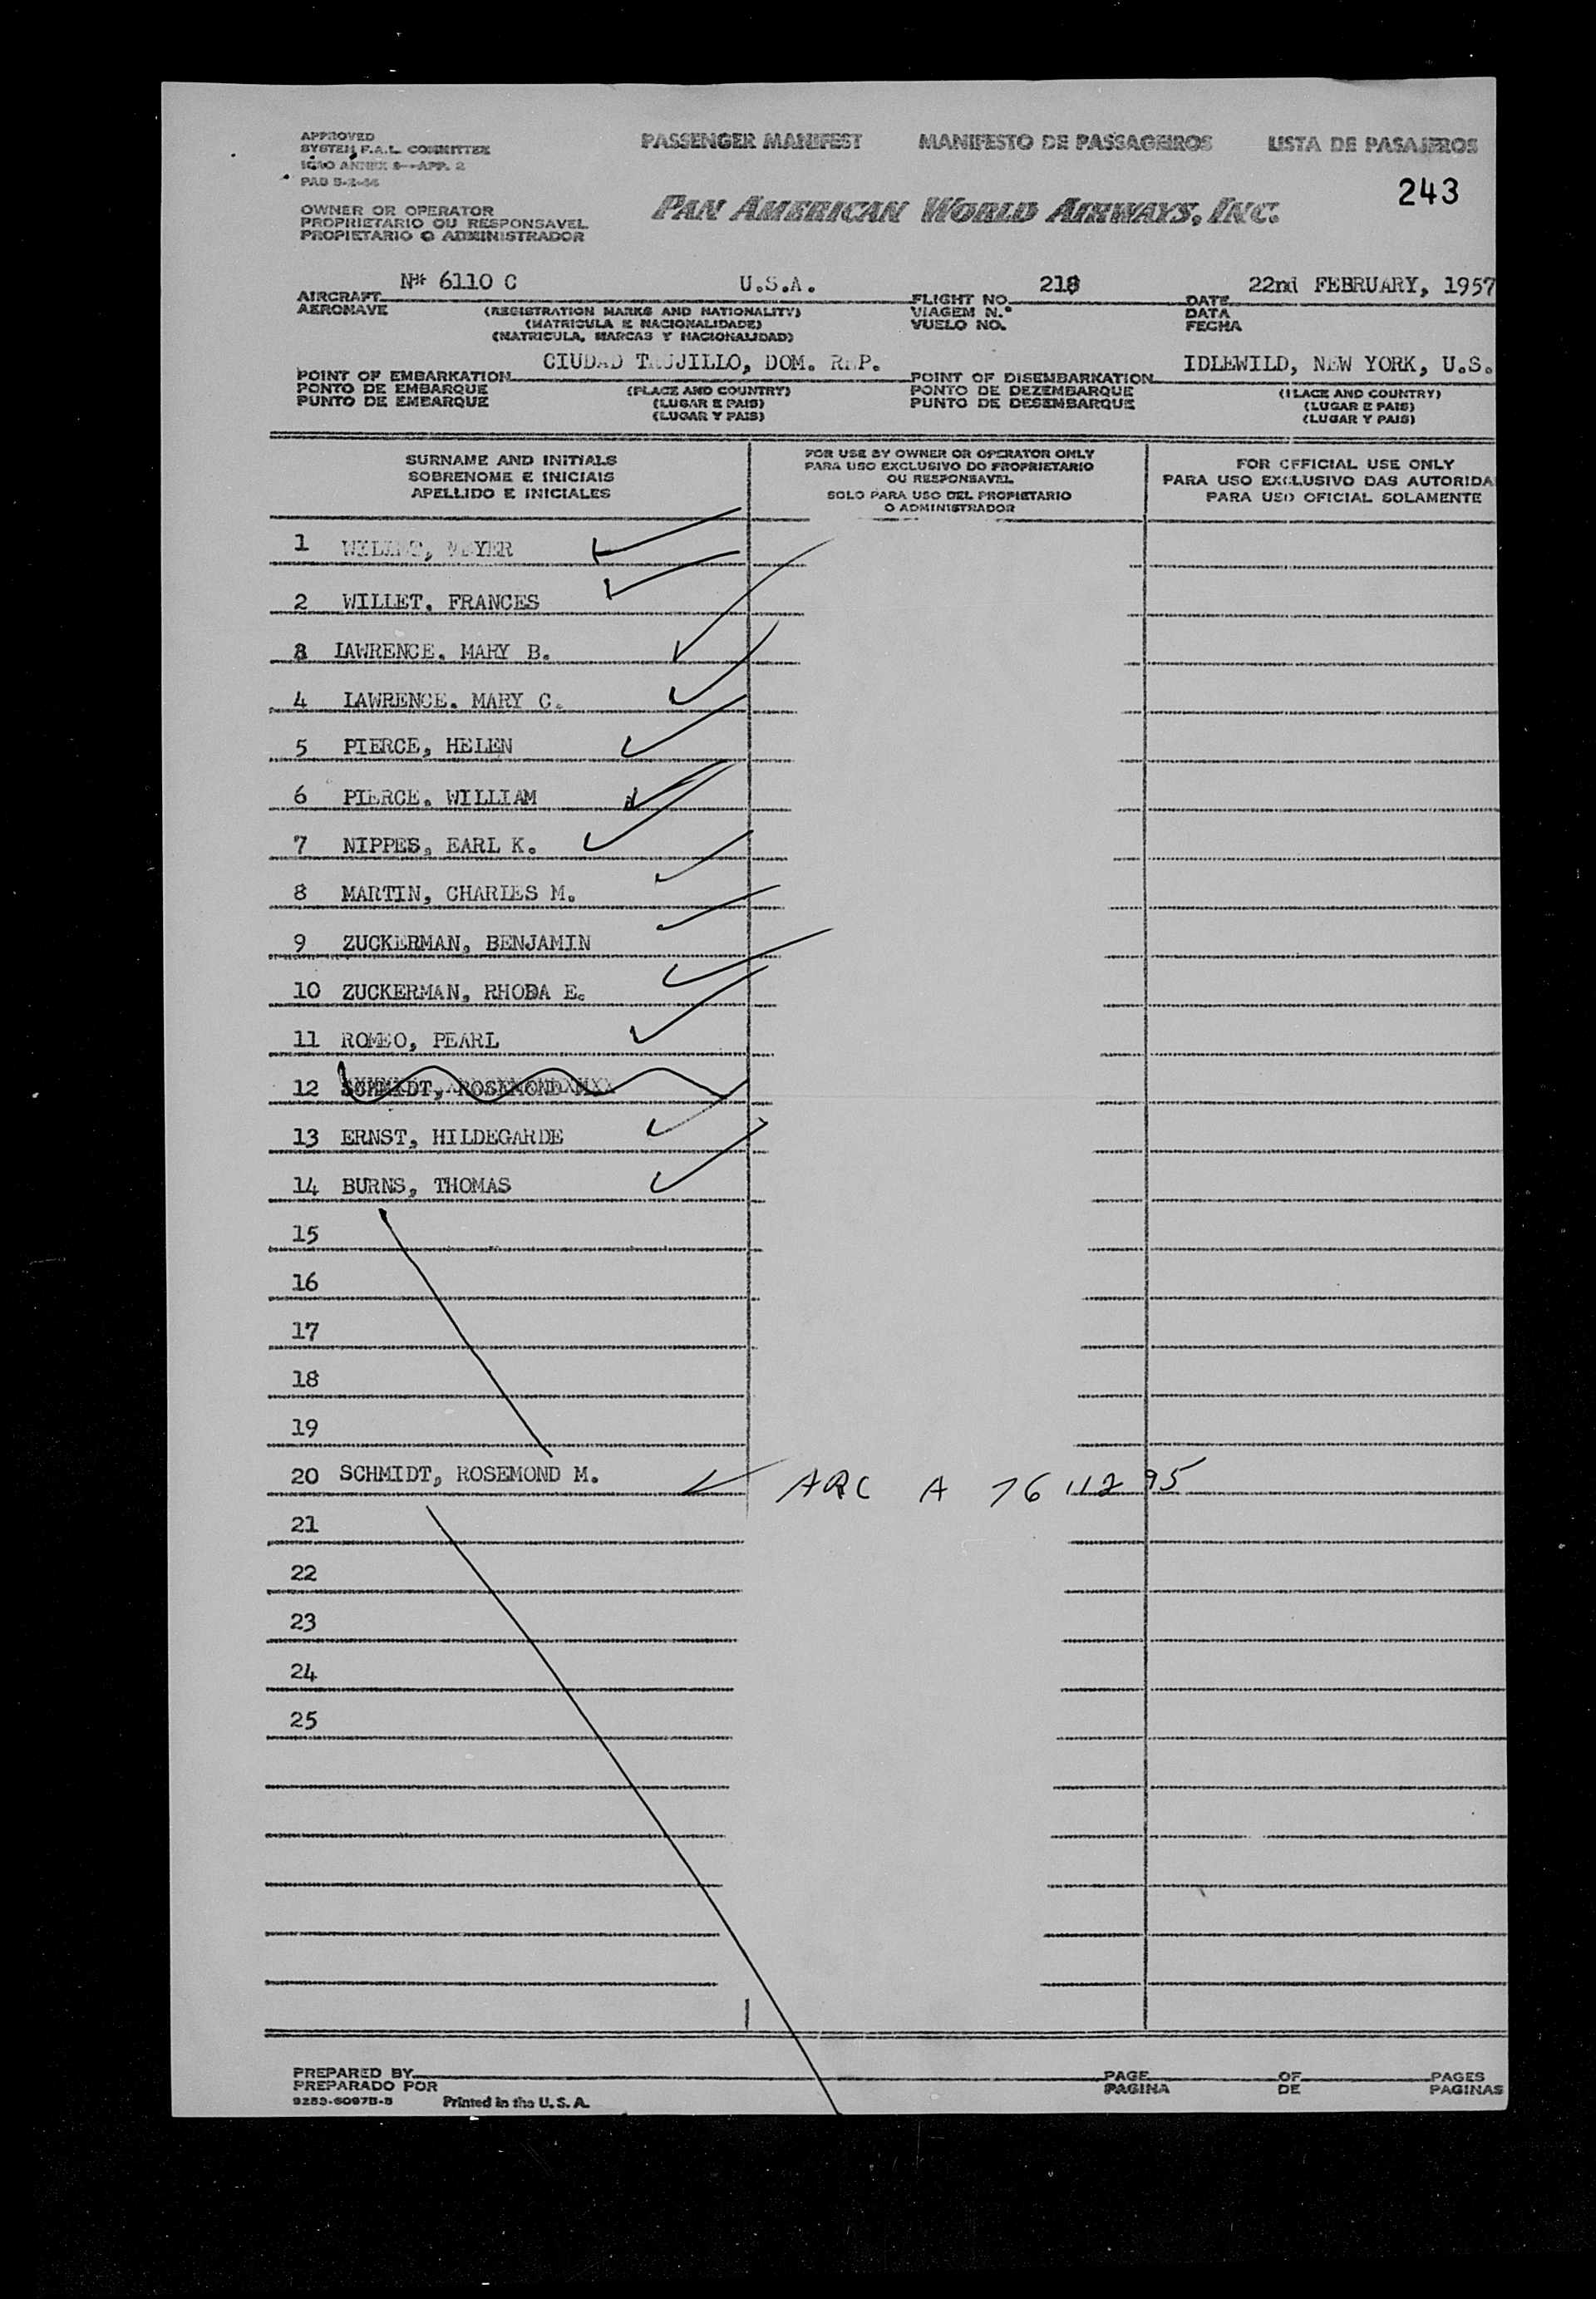 APPROVED
SYSTEM F.A.L. COMMITTEE
ICAO ANNEX 9--APP. 2
PAD
PASSENGER MANIFEST MANIFESTO DE PASSAGEIROS LISTA DE PASAJEROS
243
OWNER OR OPERATOR
PROPRIETARIO OU RESPONSAVEL
PROPIETARIO O ADMINISTRADOR
PAN AMERICAN WORLD AIRWAYS, INC.
AIRCRAFT N** 6110 C U.S.A. FLIGHT NO. 218 DATE 22nd FEBRUARY, 1957
AERONAVE (REGISTRATION MARKS AND NATIONALITY) VIAGEM N.º DATA
(MATRICULA E NACIONALIDADE) VUELO NO. FECHA
(MATRICULA, MARCAS Y NACIONALIDAD)
POINT OF EMBARKATION CIUDAD TRUJILLO, DOM. REP. POINT OF DISEMBARKATION IDLEWILD, NEW YORK, U.S.
PONTO DE EMBARQUE (PLACE AND COUNTRY) PONTO DE DEZEMBARQUE (PLACE AND COUNTRY)
PUNTO DE EMBARQUE (LUGAR E PAIS) PUNTO DE DESEMBARQUE (LUGAR E PAIS)
(LUGAR Y PAIS) (LUGAR Y PAIS)
SURNAME AND INITIALS
SOBRENOME E INICIAIS
APELLIDO E INICIALES
FOR USE BY OWNER OR OPERATOR ONLY
PARA USO EXCLUSIVO DO PROPRIETARIO
OU RESPONSAVEL
SOLO PARA USO DEL PROPIETARIO
O ADMINISTRADOR
FOR OFFICIAL USE ONLY
PARA USO EXCLUSIVO DAS AUTORIDA
PARA USO OFICIAL SOLAMENTE
1 MEYER
2 WILLET, FRANCES
3 LAWRENCE, MARY B.
4 LAWRENCE, MARY C.
5 PIERCE, HELEN
6 PIERCE, WILLIAM
7 NIPPES, EARL K.
8 MARTIN, CHARLES M.
9 ZUCKERMAN, BENJAMIN
10 ZUCKERMAN, RHODA E.
11 ROMEO, PEARL
12 SCHMIDT, ROSEMOND M
13 ERNST, HILDEGARDE
14 BURNS, THOMAS
15
16
17
18
19
20 SCHMIDT, ROSEMOND M. ARC A 76 112 95
21
22
23
24
25
PREPARED BY PAGE OF PAGES
PREPARADO POR PAGINA DE PAGINAS
9253-6097B-5 Printed in the U. S. A.